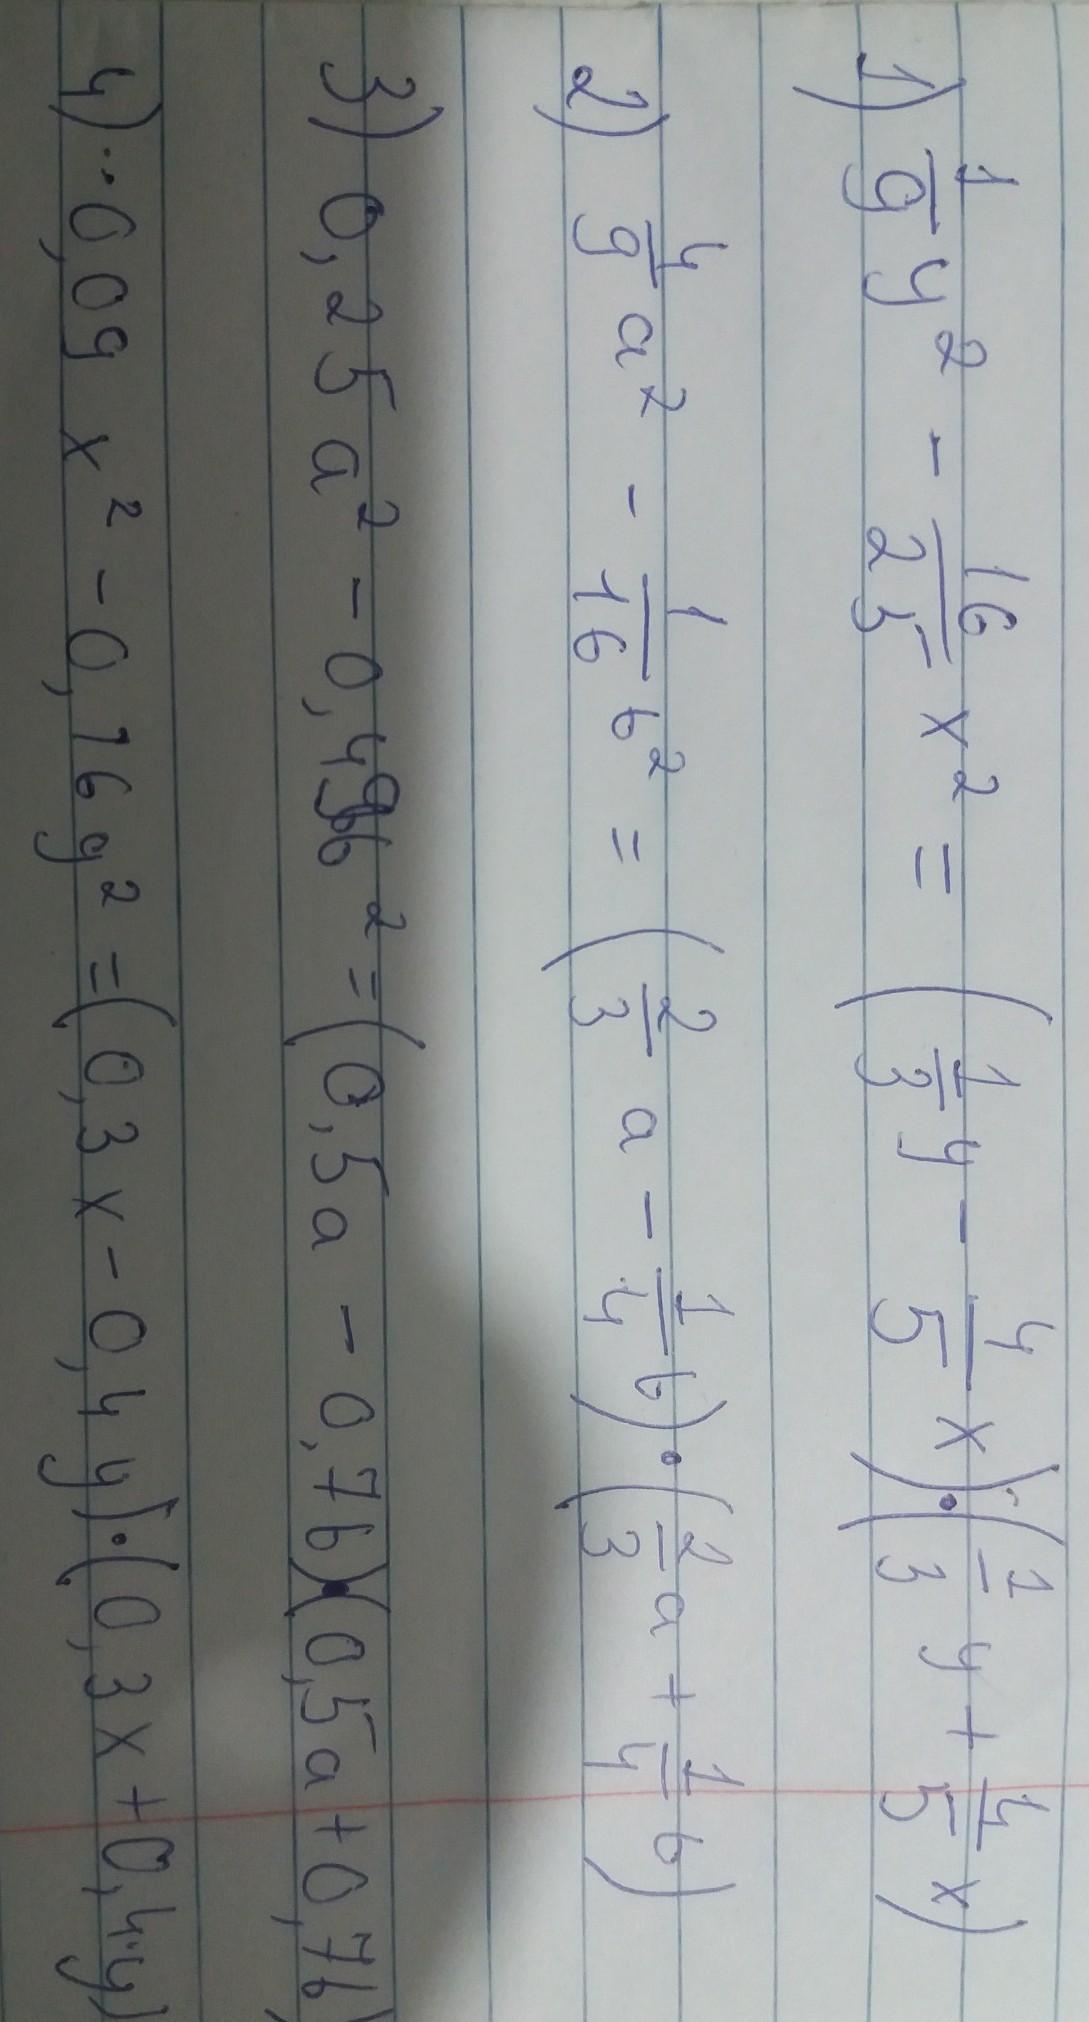 1) 1/9 y² - 16/25 x² = (1/3 y - 4/5 x)·(1/3 y + 4/5 x)
2) 4/9 a² - 1/16 b² = (2/3 a - 1/4 b)·(2/3 a + 1/4 b)
3) 0,25 a² - 0,49b² = (0,5a - 0,7b)·(0,5a + 0,7b)
4) 0,09 x² - 0,16 y² = (0,3x - 0,4y)·(0,3x + 0,4y)